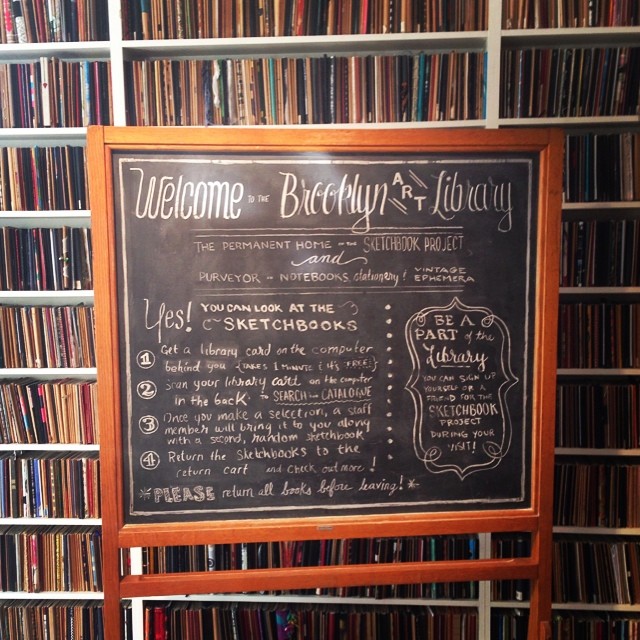 Welcome TO THE Brooklyn ART Library
THE PERMANENT HOME OF THE SKETCHBOOK PROJECT
and
PURVEYOR OF NOTEBOOKS, stationery & VINTAGE EPHEMERA
Yes! YOU CAN LOOK AT THE
SKETCHBOOKS
1 Get a library card on the computer
behind you (TAKES 1 MINUTE & it's FREE)
2 Scan your library card on the computer
in the back to SEARCH the CATALOGUE
3 Once you make a selection, a staff
member will bring it to you along
with a second, random sketchbook
4 Return the Sketchbooks to the
return cart and check out more!
*PLEASE return all books before leaving!*
BE A
PART of the
Library
YOU CAN SIGN UP
YOURSELF OR A
FRIEND FOR THE
SKETCHBOOK
PROJECT
DURING YOUR
VISIT!